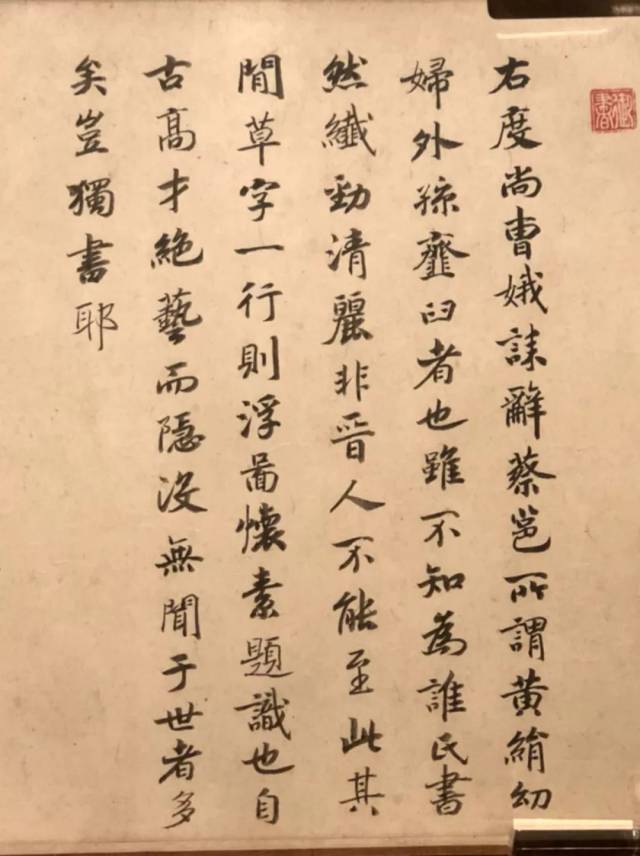 右度尚曹娥誄辭蔡邕所謂黃絹幼
婦外孫虀臼者也雖不知為誰氏書
然纖勁清麗非晉人不能至此其
閒草字一行則浮啚懷素題識也自
古高才絕藝而隱沒無聞于世者多
矣豈獨書耶